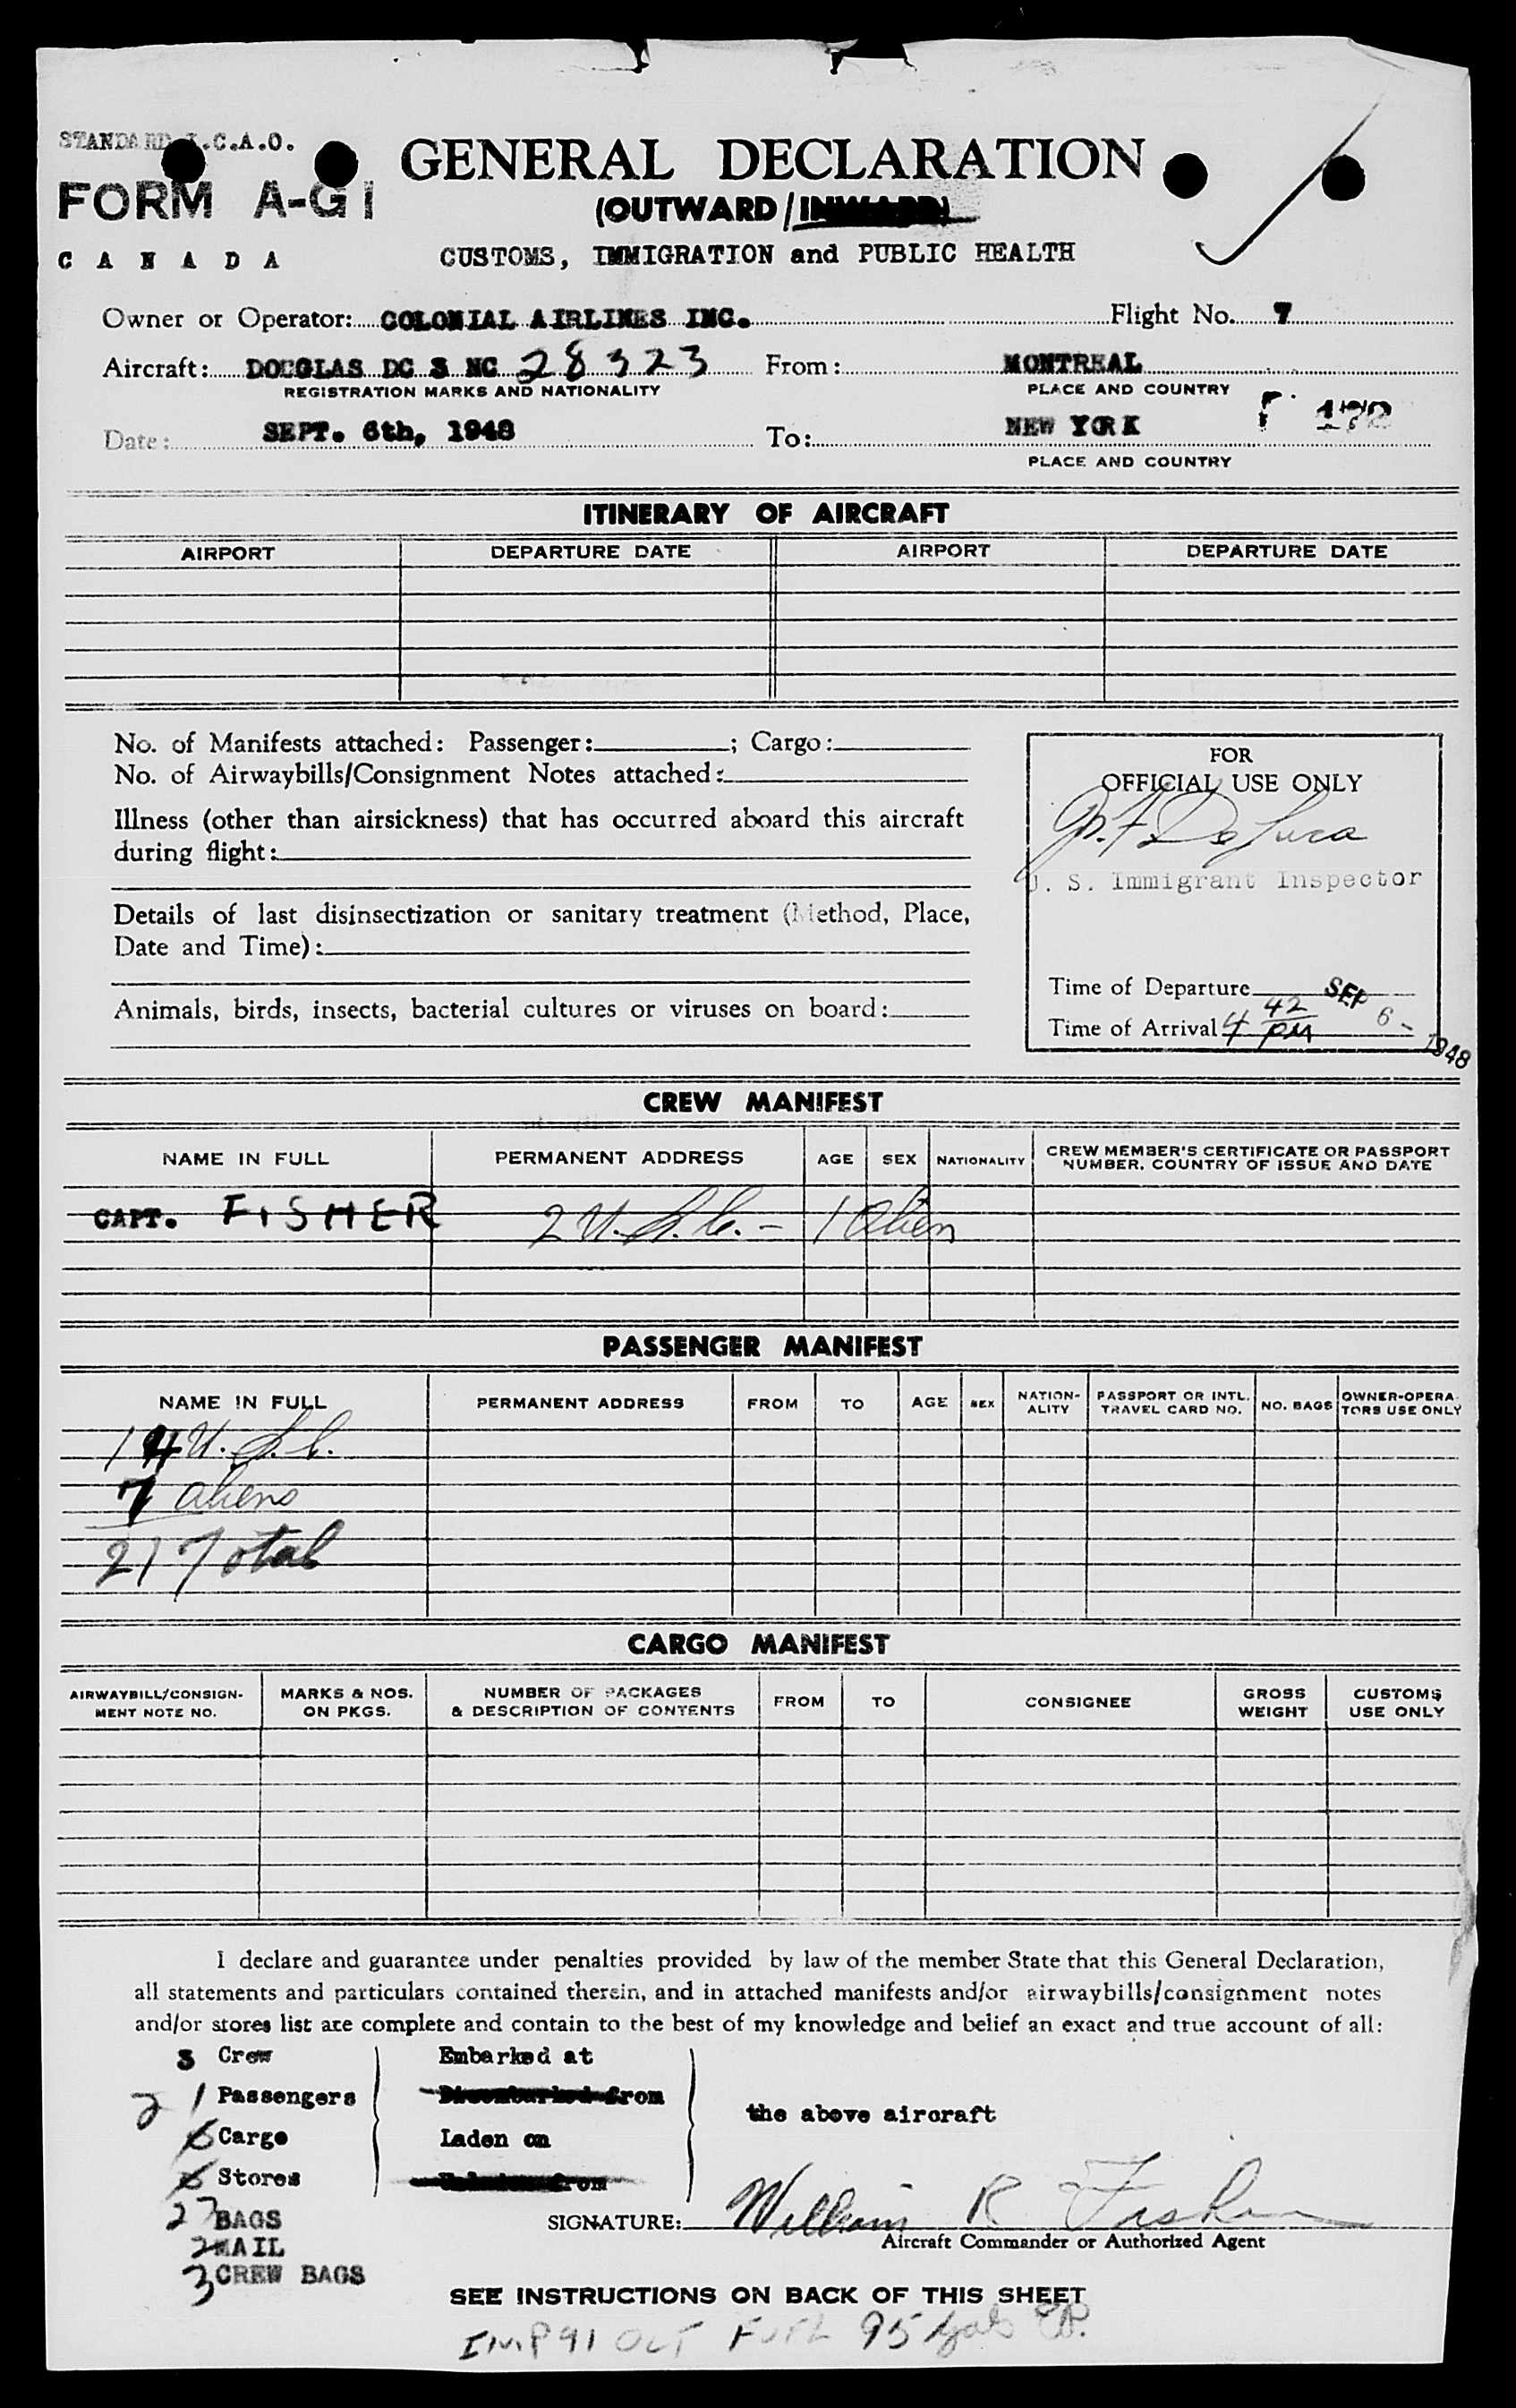 STANDARD I.C.A.O.
FORM A-G1
CANADA
GENERAL DECLARATION
(OUTWARD/INWARD)
CUSTOMS, IMMIGRATION and PUBLIC HEALTH
Owner or Operator: COLONIAL AIRLINES INC. Flight No. 7
Aircraft: DOUGLAS DC 3 NC 28323 From: MONTREAL
REGISTRATION MARKS AND NATIONALITY PLACE AND COUNTRY
Date: SEPT. 6th, 1948 To: NEW YORK 172
PLACE AND COUNTRY
ITINERARY OF AIRCRAFT
AIRPORT DEPARTURE DATE AIRPORT DEPARTURE DATE
No. of Manifests attached: Passenger: ; Cargo:
No. of Airwaybills/Consignment Notes attached:
Illness (other than airsickness) that has occurred aboard this aircraft
during flight:
Details of last disinsectization or sanitary treatment (Method, Place,
Date and Time):
Animals, birds, insects, bacterial cultures or viruses on board:
FOR
OFFICIAL USE ONLY
De Luca
U. S. Immigrant Inspector
Time of Departure
Time of Arrival 4 42 PM
SEP 6 - 1948
CREW MANIFEST
NAME IN FULL PERMANENT ADDRESS AGE SEX NATIONALITY CREW MEMBER'S CERTIFICATE OR PASSPORT
NUMBER, COUNTRY OF ISSUE AND DATE
CAPT. FISHER 2 U.S.C. - 1 Alien
PASSENGER MANIFEST
NAME IN FULL PERMANENT ADDRESS FROM TO AGE SEX NATION-
ALITY PASSPORT OR INTL.
TRAVEL CARD NO. NO. BAGS OWNER-OPERA-
TORS USE ONLY
14 U.S.C.
7 aliens
21 Total
CARGO MANIFEST
AIRWAYBILL/CONSIGN-
MENT NOTE NO. MARKS & NOS.
ON PKGS. NUMBER OF PACKAGES
& DESCRIPTION OF CONTENTS FROM TO CONSIGNEE GROSS
WEIGHT CUSTOMS
USE ONLY
I declare and guarantee under penalties provided by law of the member State that this General Declaration,
all statements and particulars contained therein, and in attached manifests and/or airwaybills/consignment notes
and/or stores list are complete and contain to the best of my knowledge and belief an exact and true account of all:
3 Crew Embarked at
21 Passengers Disembarked from
the above aircraft
Cargo Laden on
Stores Unladen from
27 BAGS
2 MAIL
3 CREW BAGS
SIGNATURE: William R Fisher
Aircraft Commander or Authorized Agent
SEE INSTRUCTIONS ON BACK OF THIS SHEET
IMP 91 OCT FUEL 95 gals